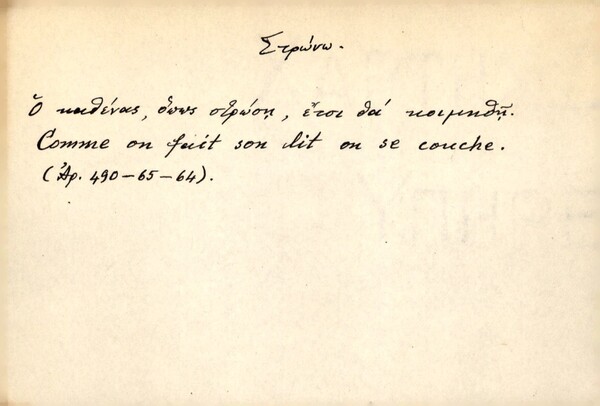 Στρώνω.
Ὁ καθένας, ὅπως στρώσῃ, ἔτσι θά κοιμηθῇ.
Comme on fait son lit on se couche.
(Ἀρ. 490-65-64).